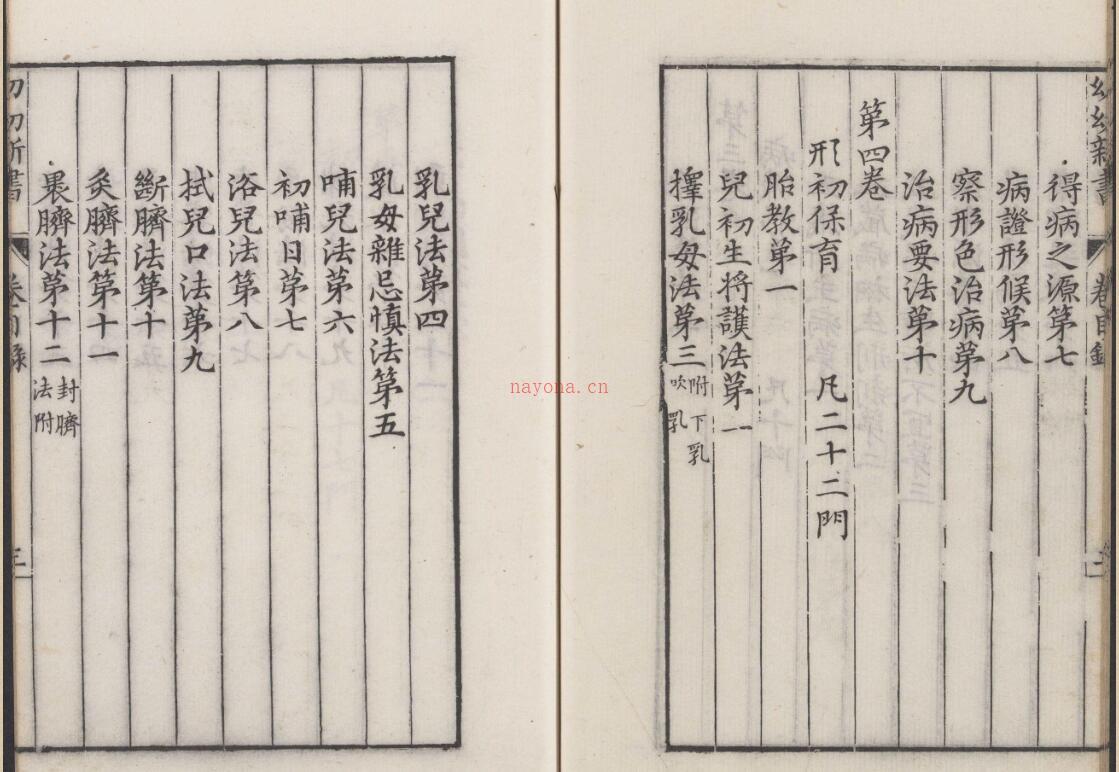 幼幼新書 卷目錄 二
得病之源第七
病證形候第八
察形色治病第九
治病要法第十
第四卷
形初保育 凡二十二門
胎教第一
兒初生将護法第一
擇乳母法第三 附下乳吹乳
乳兒法第四
乳母雜忌慎法第五
哺兒法第六
初哺日第七
浴兒法第八
拭兒口法第九
斷臍法第十
灸臍法第十一
裹臍法第十二 封臍法附
幼幼新書 卷目錄 三
nayona.cn